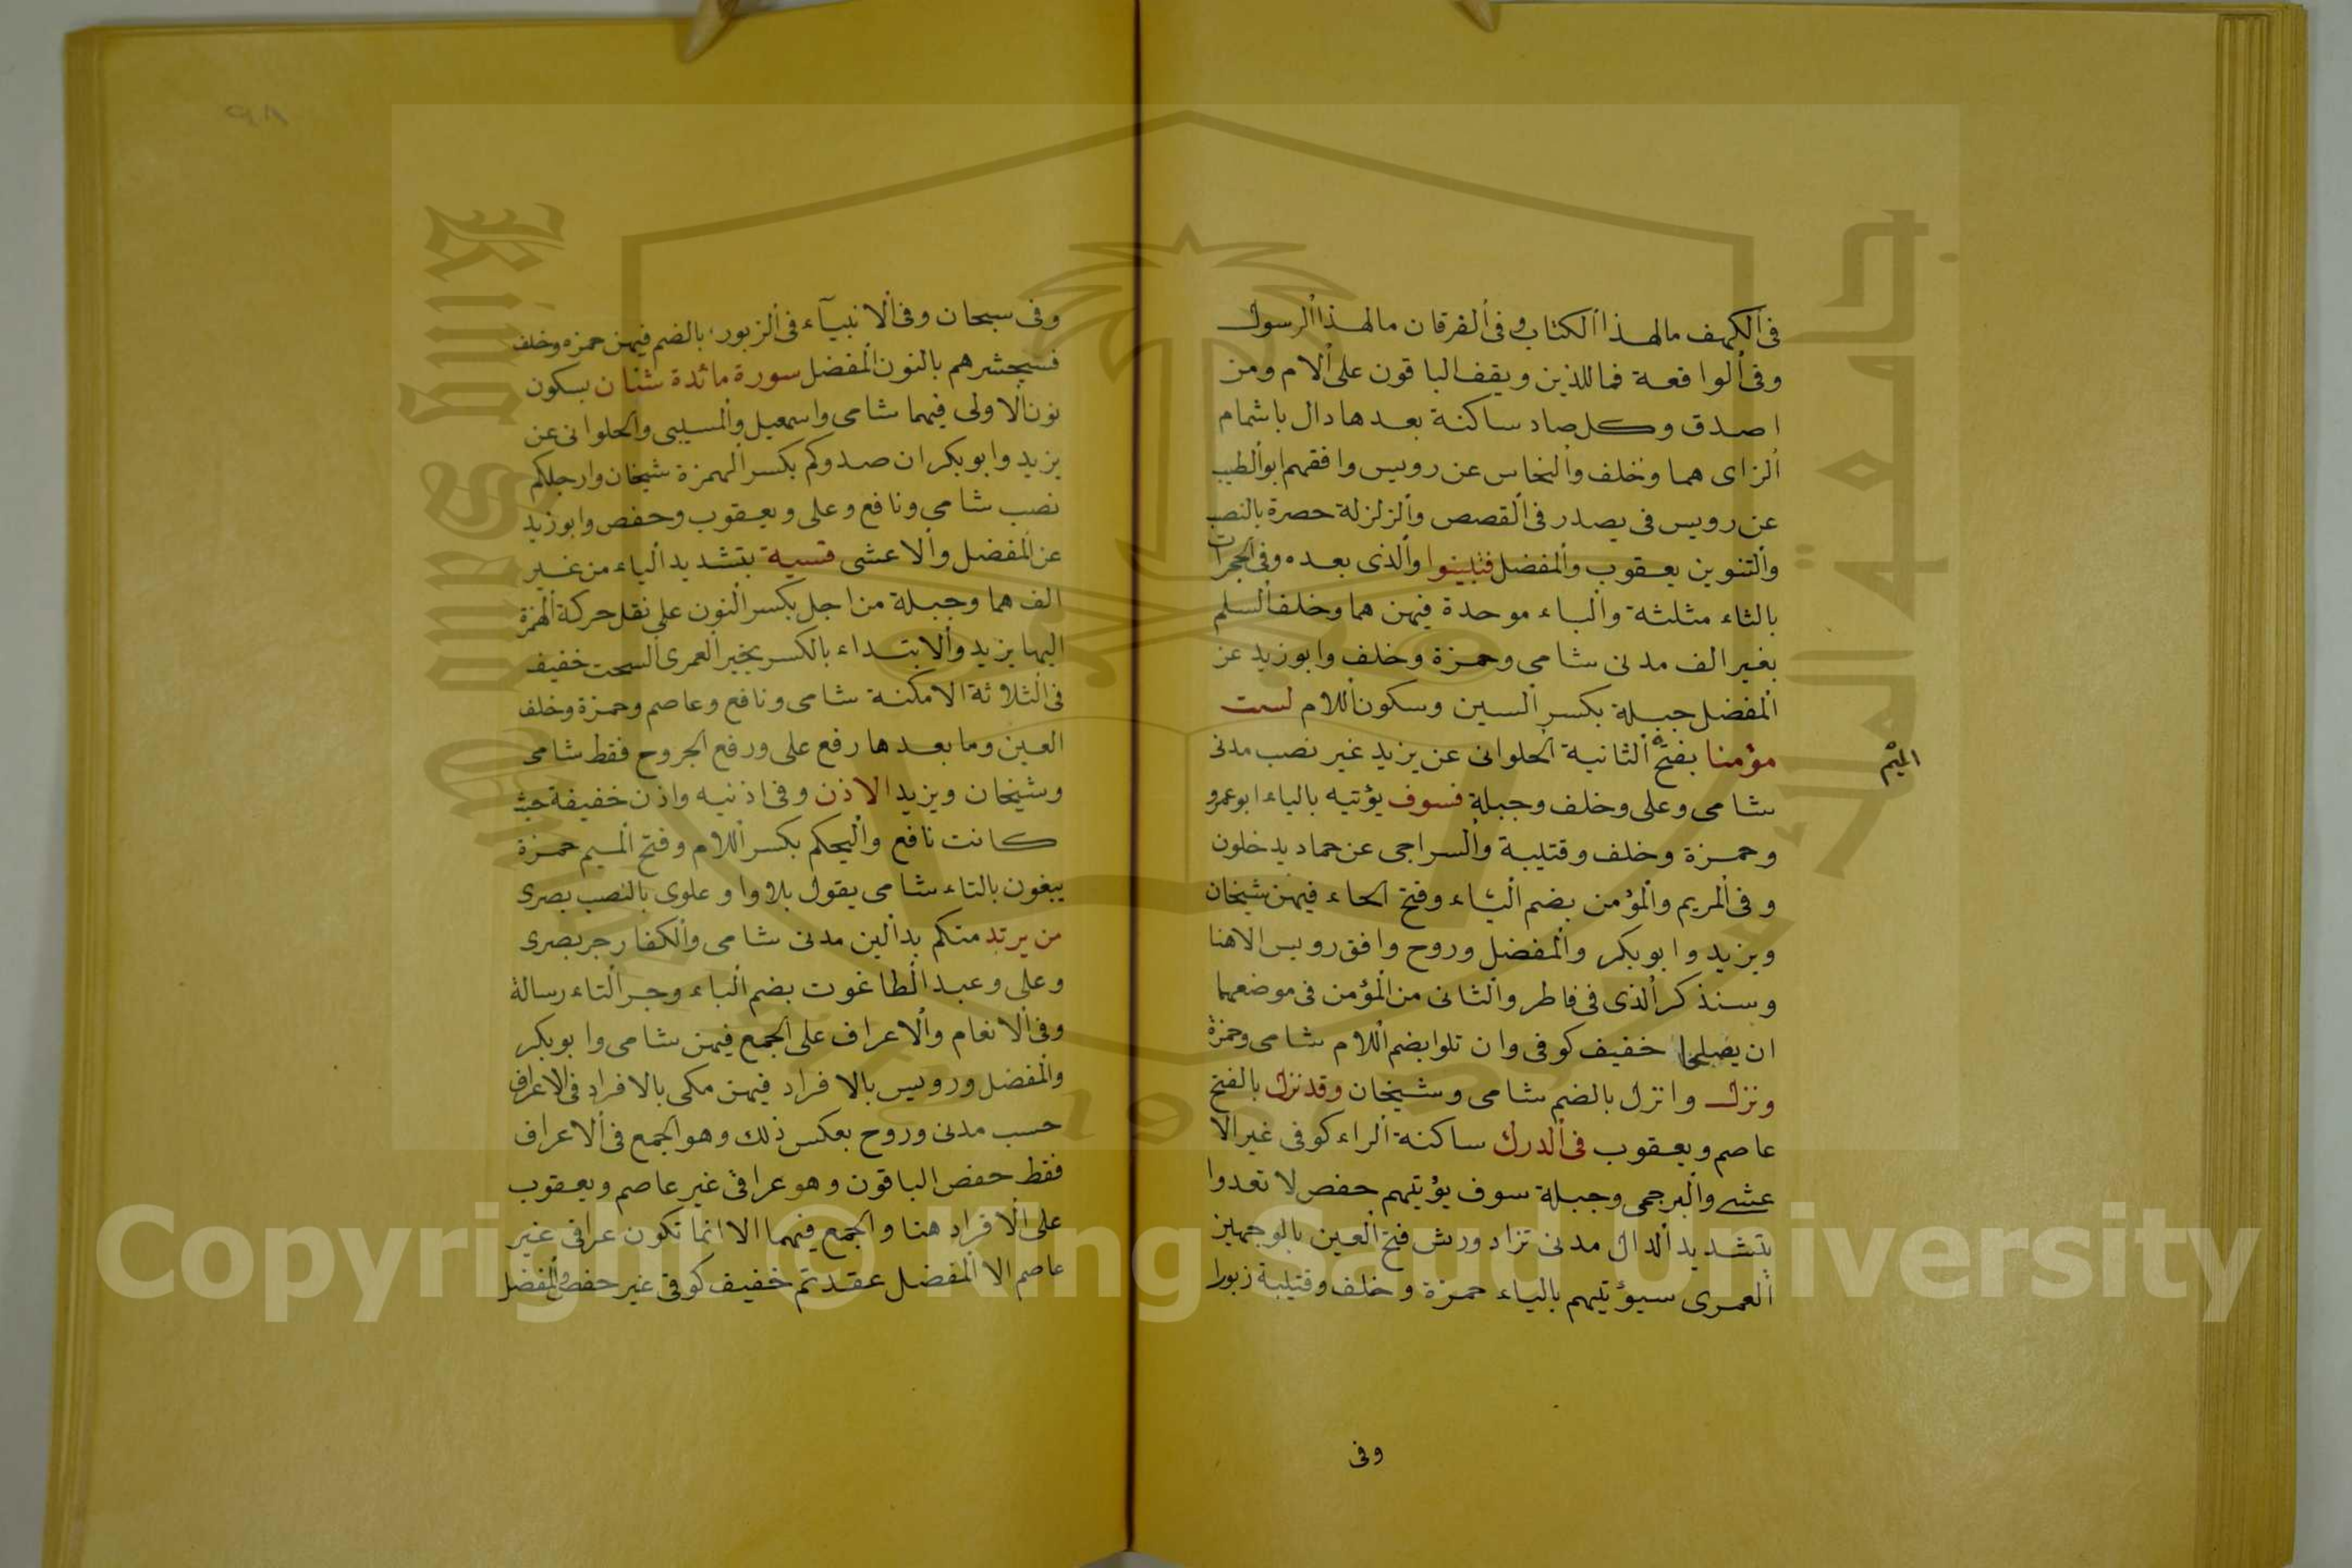 فى الكهف مالهذا الكتاب و فى الفرقان مالهذا الرسول
وفى الواقعة فماللذين ويقف الباقون على الام ومن
اصدق وكل صاد ساكنة بعدها دال باشمام
الزاى هما وخلف والنخاس عن رويس وافقهم ابوالطيب
عن رويس فى يصدر فى القصص والزلزلة حصرة بالنصب
والتنوين يعقوب والمفضل فتبينوا والذى بعده وفى الحجرات
بالثاء مثلثة والباء موحدة فيهن هما وخلف السلم
بغير الف مدنى شامى وحمزة وخلف وابو زيد عن
المفضل جبلة بكسر السين وسكون اللام لست
مؤمنا بفتح الثانية الحلوانى عن يزيد غير نصب مدنى
الميم
شامى وعلى وخلف وجبلة فسوف يؤتيه بالياء ابوعمرو
وحمزة وخلف وقتيبة والسراجى عن حماد يدخلون
وفى المريم والمؤمن بضم الياء وفتح الخاء فيهن شيخان
ويزيد وابوبكر والمفضل وروح وافق رويس الاهنا
وسنذكر الذى فى فاطر والثانى من المؤمن فى موضعهما
ان يصلحا خفيف كوفى وان تلوا بضم اللام شامى وحمزة
ونزل وانزل بالضم شامى وشيخان وقد نزل بالفتح
عاصم ويعقوب فى الدرك ساكنة الراء كوفى غير الا
عشى والبرجمى وجبلة سوف يؤتيهم حفص لا تعدوا
بتشديد الدال مدنى تزاد ورش فتح العين بالوجهين
العمرى سيؤتيهم بالياء حمزة وخلف وقتيبة زبورا
وفى
٩٨
وفى سبحان وفى الانبيآء فى الزبور، بالضم فيهن حمزه وخلف
فسيحشرهم بالنون المفضل سورة مائدة شنان بسكون
نون الاولى فيهما شامى واسمعيل والمسيبى والحلوانى عن
يزيد وابوبكر ان صدوكم بكسر الهمزة شيخان وارجلكم
نصب شامى ونافع وعلى ويعقوب وحفص وابوزيد
عن المفضل والاعشى قسية بتشديد الياء من غير
الف هما وجبلة من اجل بكسر النون على نقل حركة الهمزة
اليها يزيد والابتداء بالكسر بخير العمرى السحت خفيف
فى الثلاثة الامكنة شامى ونافع وعاصم وحمزة وخلف
العين وما بعدها رفع على ورفع الجروح فقط شامى
وشيخان ويزيد الاذن وفى اذنيه واذن خفيفة حيث
كانت نافع واليحكم بكسر اللام وفتح الميم حمزة
يبغون بالتاء شامى يقول بلا واو علوى بالنصب بصرى
من يرتد منكم بدالين مدنى شامى والكفار جر بصرى
وعلى وعبد الطاغوت بضم الباء وجر التاء رسالة
وفى الانعام والاعراف على الجمع فيهن شامى وابوبكر
والمفضل ورويس بالافراد فيهن مكى بالافراد فى الاعراف
حسب مدنى وروح بعكس ذلك وهو الجمع فى الاعراف
فقط حفص الباقون وهو عراقى غير عاصم ويعقوب
على الافراد هنا والجمع فيهما الا انما تكون عراقى غير
عاصم الا المفضل عقدتم خفيف كوفى غير حفص والمفضل
جامعة الملك
King Saud University
Copyright © King Saud University